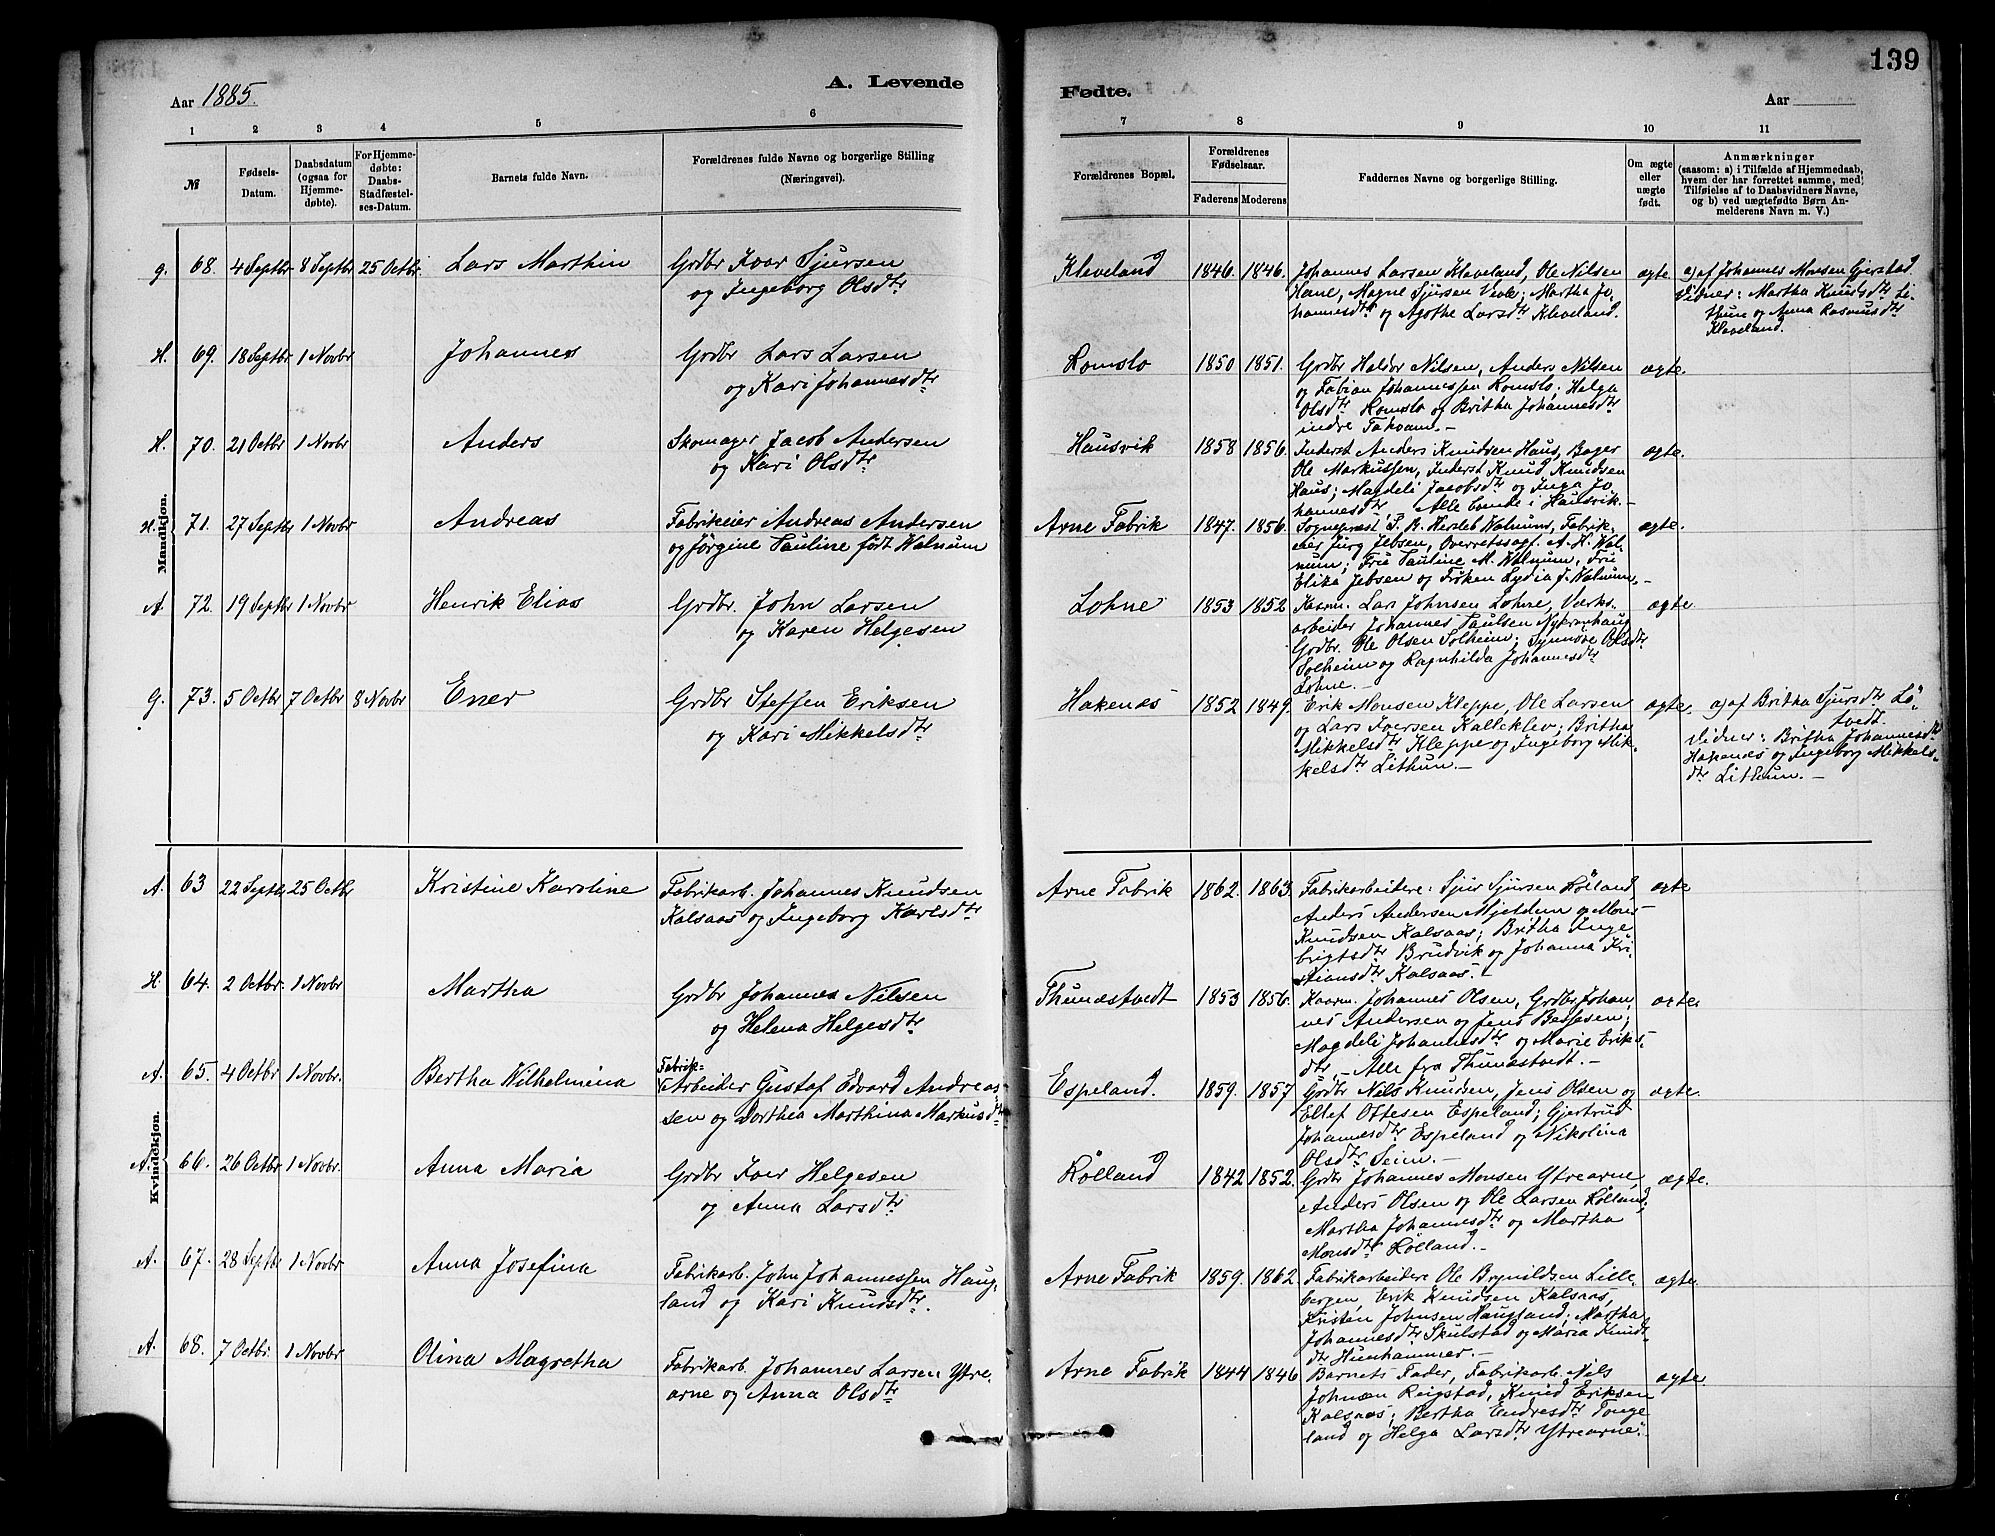 139
Aar 1885.
A. Levende
Fødte.
Aar
1 2 3 4 5 6
7 8 9 10 11
№
Fødsels-
Datum.
Daabsdatum
(ogsaa for
Hjemme-
døbte).
For Hjemme-
døbte:
Daabs-
Stadfæstel-
ses-Datum.
Barnets fulde Navn.
Forældrenes fulde Navne og borgerlige Stilling
(Næringsvei).
Forældrenes Bopæl.
Forældrenes
Fødselsaar.
Faderens Moderens
Faddernes Navne og borgerlige Stilling.
Om ægte
eller
uægte
født.
Anmærkninger
(saasom: a) i Tilfælde af Hjemmedaab,
hvem der har forrettet samme, med
Tilføielse af to Daabsvidners Navne,
og b) ved uægtefødte Børn An-
melderens Navn m. V.)
Mandkjøn.
g. 68. 4 Septbr 8 Septbr 25 Octbr. Lars Marthin
Grdbr Ivar Sjursen
og Ingeborg Olsdtr
Kleveland 1846. 1846.
Johannes Larsen Kleveland, Ole Nilsen
Hane, Magne Sjursen Veole; Martha Jo-
hannesdtr og Agathe Larsdtr Kleveland.
ægte.
a) af Johannes Monsen Gjerstad.
Vidner: Martha Knudsdtr Li-
thun og Anna Rasmusdtr
Kleveland.
H. 69. 18 Septbr 1 Novbr Johannes
Grdbr Lars Larsen
og Kari Johannesdtr
Romslo 1850 1851.
Grdbr Haldor Nilsen, Anders Nilsen
og Fabian Johannessen Romslo; Helga
Olsdtr Romslo og Britha Johannesdtr
indre Takvam.-
ægte.
H. 70. 21 Octbr 1 Novbr Anders
Skomager Jacob Andersen
og Kari Olsdtr
Hausvik 1858 1856.
Inderst Anders Knudsen Haus, Bager
Ole Markussen, Inderst Knud Knudsen
Haus; Magdeli Jacobsdtr og Inga Jo
hannesdtr, Alle boende i Hausvik.-
ægte.
H. 71. 27 Septbr 1 Novbr Andreas
Fabrikeier Andreas Andersen
og Jørgine Pauline født Walnum
Arne Fabrik 1847. 1856.
Sognepræst J. R. Hersleb Walnum, Fabrik-
eier Jürg Jebsen, Overretssagf. A. H. Wal-
num; Fru Pauline M. Walnum, Fru
Elika Jebsen og Frøken Lydia J. Walnum.-
ægte.
A. 72. 19 Septbr 1 Novbr Henrik Elias
Grdbr. John Larsen
og Karen Helgesen
Lohne 1853 1852
Kaarm. Lars Johnsen Lohne, Værks-
arbeider Johannes Paulsen Nykrenhaug
Grdbr. Ole Olsen Solheim; Synnøve Olsdtr
Solheim og Ragnhilda Johannesdtr
Lohne.-
ægte.
g. 73. 5 Octbr 7 Octbr 8 Novbr Ener
Grdbr Steffen Eriksen
og Kari Mikkelsdtr
Hakenes 1852 1849.
Erik Monsen Kleppe, Ole Larsen
og Lars Iversen Kalleklev; Britha
Mikkelsdtr Kleppe og Ingeborg Mik-
kelsdtr Lithun.-
ægte.
a) af Britha Sjursdtr Lø-
tvedt.
Vidner: Britha Johannesdtr
Hakenes og Ingeborg Mikkels-
dtr Lithun.-
Kvindekjøn.
A. 63 22 Septbr 25 Octbr Kristine Karoline
Fabrikarb. Johannes Knudsen
Kalsaas og Ingeborg Karlsdtr
Arne Fabrik 1862. 1863.
Fabrikarbeidere: Sjur Sjursen Rölland
Anders Andersen Mjeldem og Mons
Knudsen Kalsaas; Britha Inge
brigtsdtr Brudvik og Johanna Kri-
stiansdtr Kalsaas.-
ægte
H. 64. 2 Octbr. 1 Novbr Martha
Grdbr Johannes Nilsen
og Helena Helgesdtr
Thunestvedt 1853 1856.
Kaarm. Johannes Olsen, Grdbr Johan-
nes Andersen og Jens Bessesen;
Magdeli Johannesdtr og Marie Eriks-
dtr.- Alle fra Thunestvedt.-
ægte
A. 65. 4 Octbr 1 Novbr. Bertha Wilhelmina
Fabrik-
Arbeider Gustaf Edvard Andreas-
sen og Dorthea Marthina Markusdtr
Espeland. 1859. 1857
Grdbr Nils Knudsen, Jens Olsen og
Ellef Ottesen Espeland; Gjertrud
Johannesdtr Espeland og Nikolina
Olsdtr Seim.-
ægte.
A. 66. 26 Octbr 1 Novbr. Anna Maria
Grdbr Iver Helgesen
og Anna Larsdtr
Rölland 1842 1852.
Grdbr Johannes Monsen Ytrearne,
Anders Olsen og Ole Larsen Rölland;
Martha Johannesdtr og Martha
Monsdtr Rölland.-
ægte.
A. 67. 28 Septbr 1 Novbr Anna Josefina
Fabrikarb. John Johannessen Haug-
land og Kari Knudsdtr.
Arne Fabrik 1859. 1862.
Fabrikarbeidere Ole Brynildsen Lille-
bergen, Erik Knudsen Kalsaas,
Kristen Johnsen Haugland, Martha
Johannesdtr Skulstad og Maria Knud-
dtr Hunhammer.-
ægte.
A. 68. 7 Octbr. 1 Novbr Olina Magretha
Fabrikarb. Johannes Larsen Ytre-
arne og Anna Olsdtr
Arne Fabrik 1844 1846
Barnets Fader, Fabrikarb. Nils
Johnsen Reigstad, Knud Eriksen
Kalsaas; Bertha Endresdtr Tonge
land og Helga Larsdtr Ytrearne.-
ægte.